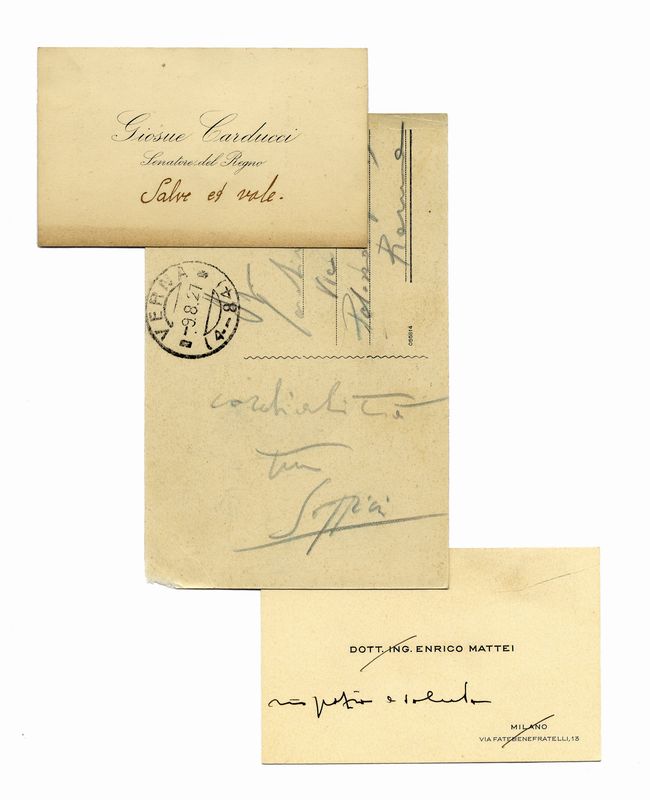 Giosue Carducci
Senatore del Regno
Salve et vale.
VERNA
-9.8.21
(4-8 4)
Roma
055814
cordialità
tuo
Soffici
DOTT. ING. ENRICO MATTEI
ringrazia e saluta
MILANO
VIA FATEBENEFRATELLI, 13